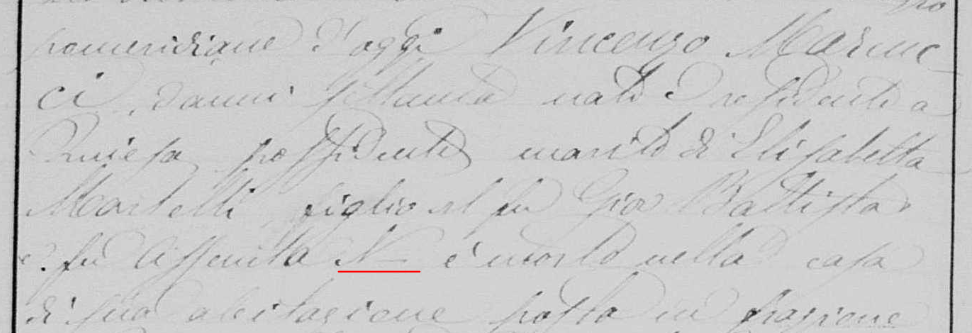 pomeridiane d'oggi Vincenzo Marinuc-
ci, d'anni Settanta nato e residente a
possidente marito di Elisabetta
Martelli figlio del fu Gio Battista
e fu Assunta N è morto nella casa
di sua abitazione posta in frazione